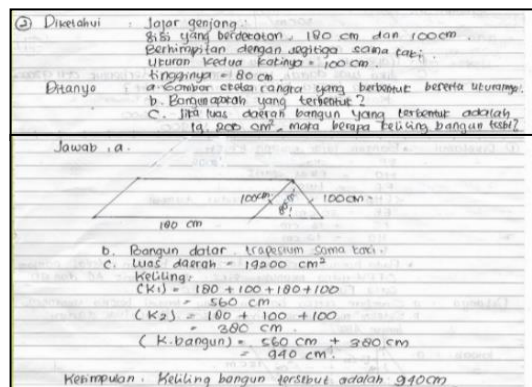 ② Diketahui : Jajar genjang.
Sisi yang berdekatan, 180 cm dan 100 cm.
Berhimpitan dengan segitiga sama kaki.
Ukuran kedua kakinya = 100 cm.
tingginya = 80 cm.
Ditanya a. Gambar sketsa rangka yang berbentuk beserta ukurannya.
b. Bangun apakah yang terbentuk?
C. Jika luas daerah bangun yang terbentuk adalah
19.200 cm², maka berapa keliling bangun tsbt?
Jawab . a.
100cm
80cm
100cm
180 cm
b. Bangun datar trapesium sama kaki
C. Luas daerah = 19200 cm²
Keliling:
(K1) = 180 + 100 + 180 + 100
= 560 cm
(K2) = 180 + 100 + 100
= 380 cm
(K.bangun) = 560 cm + 380 cm
= 940 cm.
Kesimpulan . Keliling bangun tersebut adalah 940cm